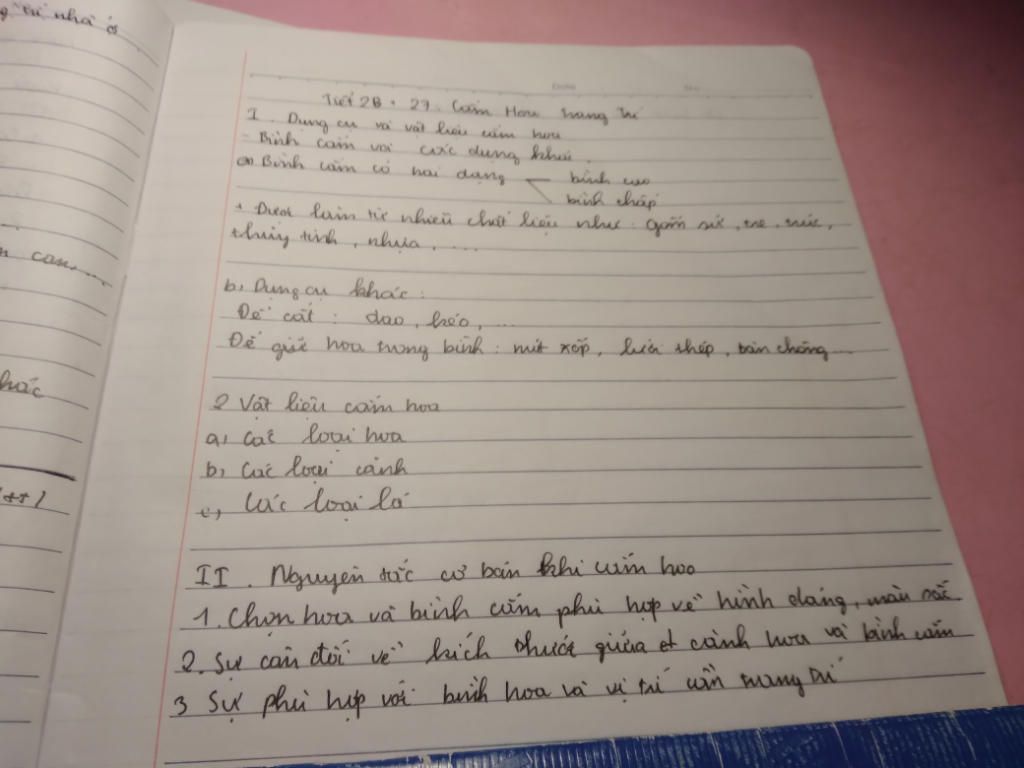 g trí nhà ở
Tiết 26 + 27. Cắm Hoa Trang Trí
I. Dụng cụ và vật liệu cắm hoa
- Bình cắm và các dụng khác.
a, Bình cắm có hai dạng bình cao
bình thấp
+ Được làm từ nhiều chất liệu như: gốm sứ, tre, trúc,
thủy tinh, nhựa, ...
b, Dụng cụ khác:
Để cắt: dao, kéo, ...
Để giữ hoa trong bình: mút xốp, lưới thép, bàn chông...
2 Vật liệu cắm hoa
a, Các loại hoa
b, Các loại cành
c, Các loại lá
II. Nguyên tắc cơ bản khi cắm hoa
1. Chọn hoa và bình cắm phù hợp về hình dáng, màu sắc.
2. Sự cân đối về kích thước giữa cành hoa và bình cắm
3 Sự phù hợp với bình hoa và vị trí cần trang trí